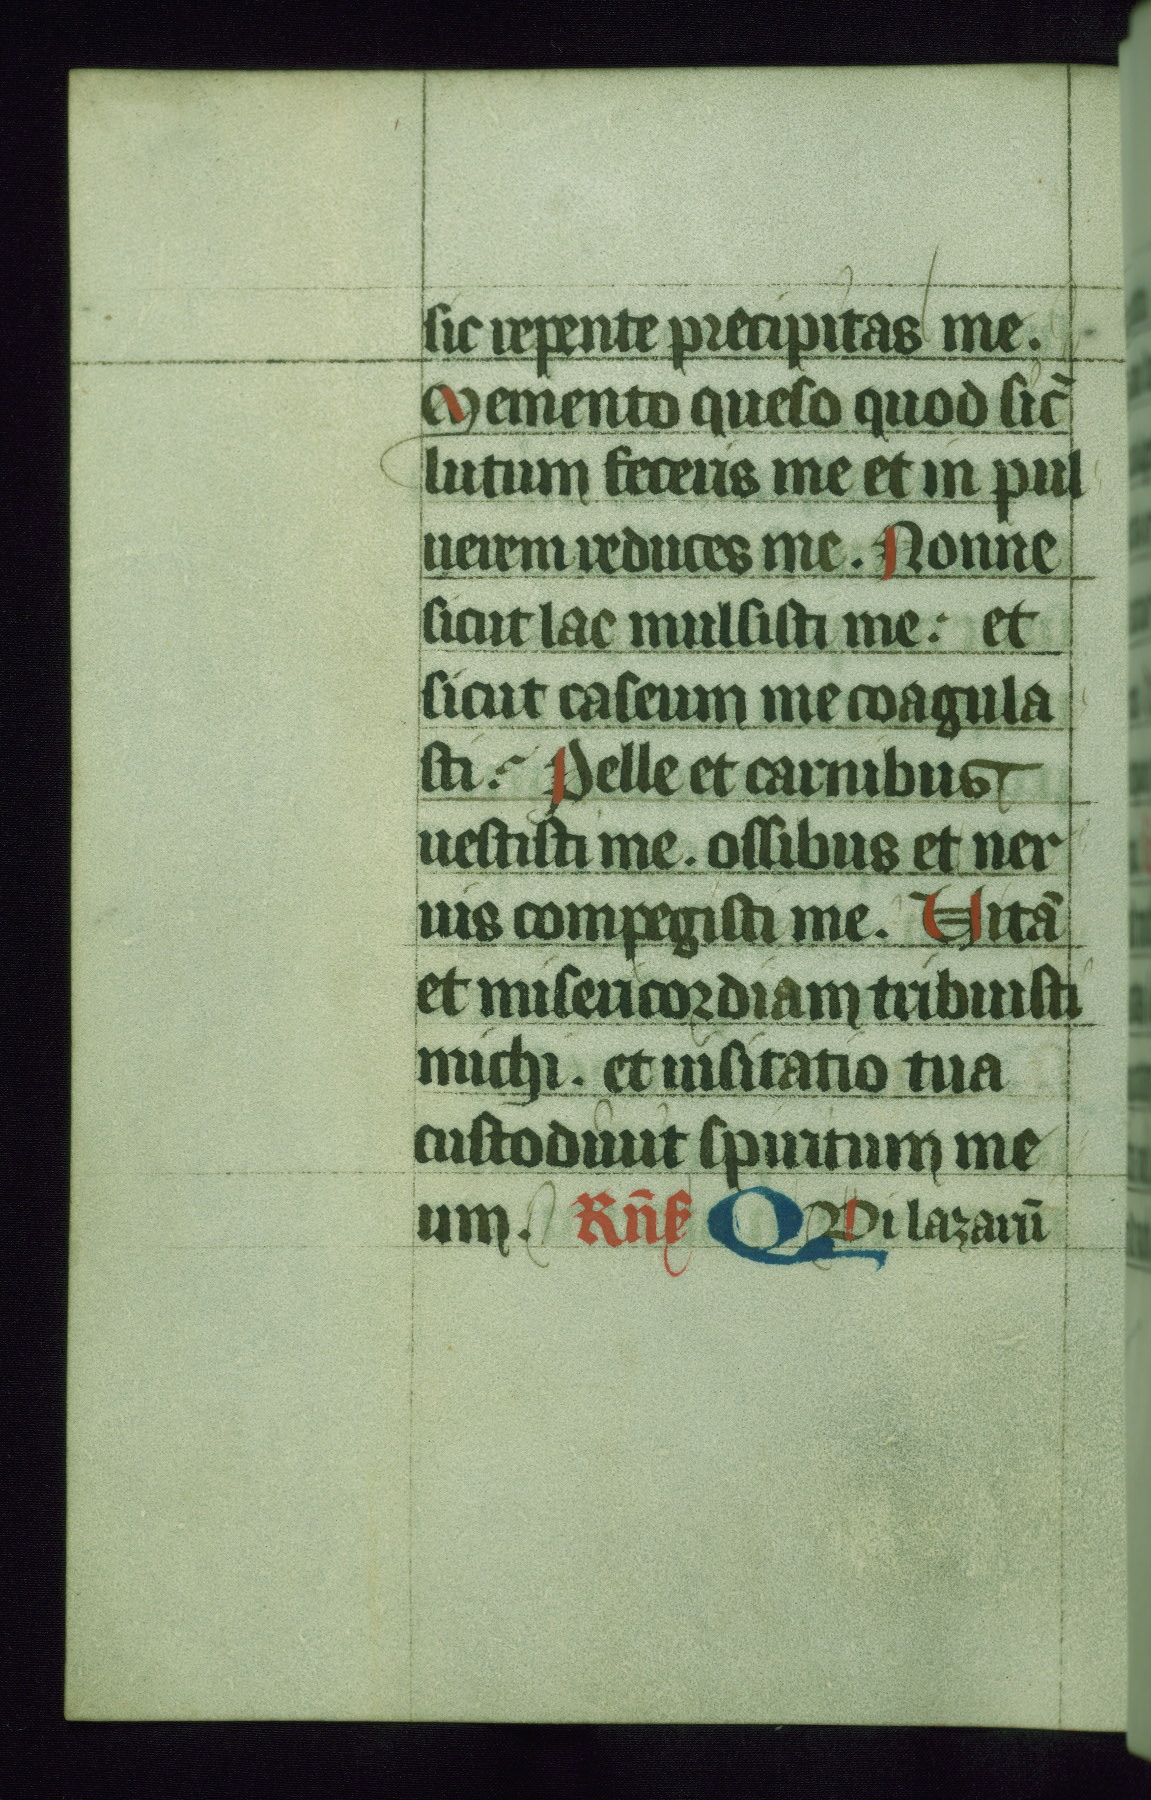 sic repente precipitas me.
Memento queso quod sic̄
lutum feceris me et in pul
uerem reduces me. Nonne
sicut lac mulsisti me: et
sicut caseum me coagula
sti: Pelle et carnibus
uestisti me. ossibus et ner
uis compegisti me. Uitā
et misericordiam tribuisti
michi. et uisitatio tua
custodiuit spiritum me
um. QUi lazarū